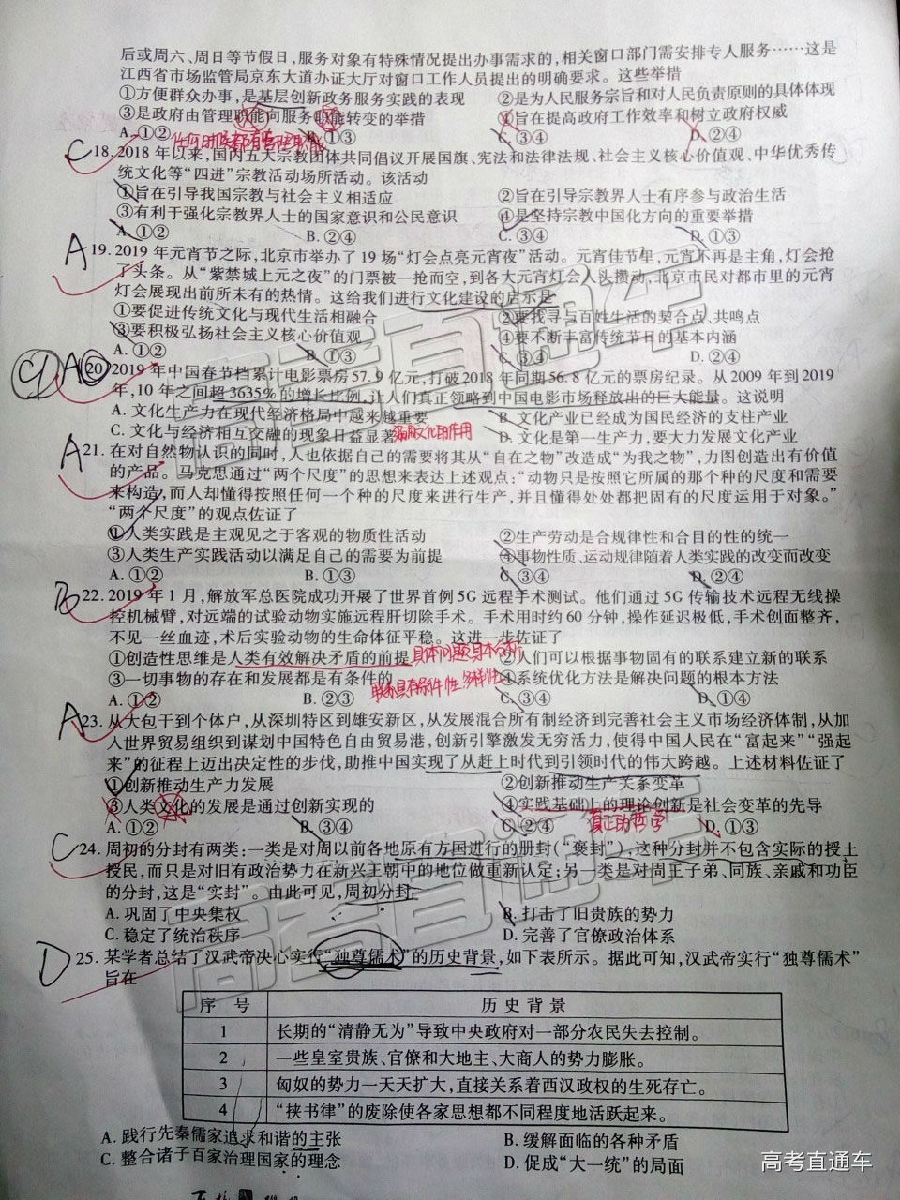 后或周六、周日等节假日,服务对象有特殊情况提出办事需求的,相关窗口部门需安排专人服务……这是
江西省市场监管局京东大道办证大厅对窗口工作人员提出的明确要求。这些举措
①方便群众办事,是基层创新政务服务实践的表现 ②是为人民服务宗旨和对人民负责原则的具体体现
③是政府由管理职能向服务职能转变的举措 ④旨在提高政府工作效率和树立政府权威
A.①② B.①③ C.③④ D.②④
任何时候都有管理职能
C
18.2018年以来,国内五大宗教团体共同倡议开展国旗、宪法和法律法规、社会主义核心价值观、中华优秀传
统文化等“四进”宗教活动场所活动。该活动
①旨在引导我国宗教与社会主义相适应 ②旨在引导宗教界人士有序参与政治生活
③有利于强化宗教界人士的国家意识和公民意识 ④是坚持宗教中国化方向的重要举措
A.①② B.②④ C.③④ D.①③
A
19.2019年元宵节之际,北京市举办了19场“灯会点亮元宵夜”活动。元宵佳节里,元宵不再是主角,灯会抢
了头条。从“紫禁城上元之夜”的门票被一抢而空,到各大元宵灯会人头攒动,北京市民对都市里的元宵
灯会展现出前所未有的热情。这给我们进行文化建设的启示是
①要促进传统文化与现代生活相融合 ②要找寻与百姓生活的契合点、共鸣点
③要积极弘扬社会主义核心价值观 ④要不断丰富传统节日的基本内涵
A.①② B.①③ C.③④ D.②④
C A
20.2019年中国春节档累计电影票房57.9亿元,打破2018年同期56.8亿元的票房纪录。从2009年到2019
年,10年之间超3635%的增长比例,让人们真正领略到中国电影市场释放出的巨大能量。这说明
A.文化生产力在现代经济格局中越来越重要 B.文化产业已经成为国民经济的支柱产业
C.文化与经济相互交融的现象日益显著 D.文化是第一生产力,要大力发展文化产业
A
21.在对自然物认识的同时,人也依据自己的需要将其从“自在之物”改造成“为我之物”,力图创造出有价值
的产品。马克思通过“两个尺度”的思想来表达上述观点:“动物只是按照它所属的那个种的尺度和需要
来构造,而人却懂得按照任何一个种的尺度来进行生产,并且懂得处处都把固有的尺度运用于对象。”
“两个尺度”的观点佐证了
①人类实践是主观见之于客观的物质性活动 ②生产劳动是合规律性和合目的性的统一
③人类生产实践活动以满足自己的需要为前提 ④事物性质、运动规律随着人类实践的改变而改变
A.①② B.①③ C.③④ D.②④
B
22.2019年1月,解放军总医院成功开展了世界首例5G远程手术测试。他们通过5G传输技术远程无线操
控机械臂,对远端的试验动物实施远程肝切除手术。手术用时约60分钟,操作延迟极低,手术创面整齐,
不见一丝血迹,术后实验动物的生命体征平稳。这进一步佐证了
①创造性思维是人类有效解决矛盾的前提 ②人们可以根据事物固有的联系建立新的联系
具体问题具体分析
③一切事物的存在和发展都是有条件的 ④系统优化方法是解决问题的根本方法
联系具有条件性、多样性
A.①② B.②③ C.③④ D.①④
A
23.从大包干到个体户,从深圳特区到雄安新区,从发展混合所有制经济到完善社会主义市场经济体制,从加
入世界贸易组织到谋划中国特色自由贸易港,创新引擎激发无穷活力,使得中国人民在“富起来”“强起
来”的征程上迈出决定性的步伐,助推中国实现了从赶上时代到引领时代的伟大跨越。上述材料佐证了
①创新推动生产力发展 ②创新推动生产关系变革
③人类文化的发展是通过创新实现的 ④实践基础上的理论创新是社会变革的先导
A.①② B.③④ C.②④ D.①③
真正的哲学
C
24.周初的分封有两类:一类是对周以前各地原有方国进行的册封(“褒封”),这种分封并不包含实际的授土
授民,而只是对旧有政治势力在新兴王朝中的地位做重新认定;另一类是对周王子弟、同族、亲戚和功臣
的分封,这是“实封”。由此可见,周初分封
A.巩固了中央集权 B.打击了旧贵族的势力
C.稳定了统治秩序 D.完善了官僚政治体系
D
25.某学者总结了汉武帝决心实行“独尊儒术”的历史背景,如下表所示。据此可知,汉武帝实行“独尊儒术”
旨在
序 号 历史背景
1 长期的“清静无为”导致中央政府对一部分农民失去控制。
2 一些皇室贵族、官僚和大地主、大商人的势力膨胀。
3 匈奴的势力一天天扩大,直接关系着西汉政权的生死存亡。
4 “挟书律”的废除使各家思想都不同程度地活跃起来。
A.践行先秦儒家追求和谐的主张 B.缓解面临的各种矛盾
C.整合诸子百家治理国家的理念 D.促成“大一统”的局面
高考直通车
高考直通车
高考直通车
高考直通车